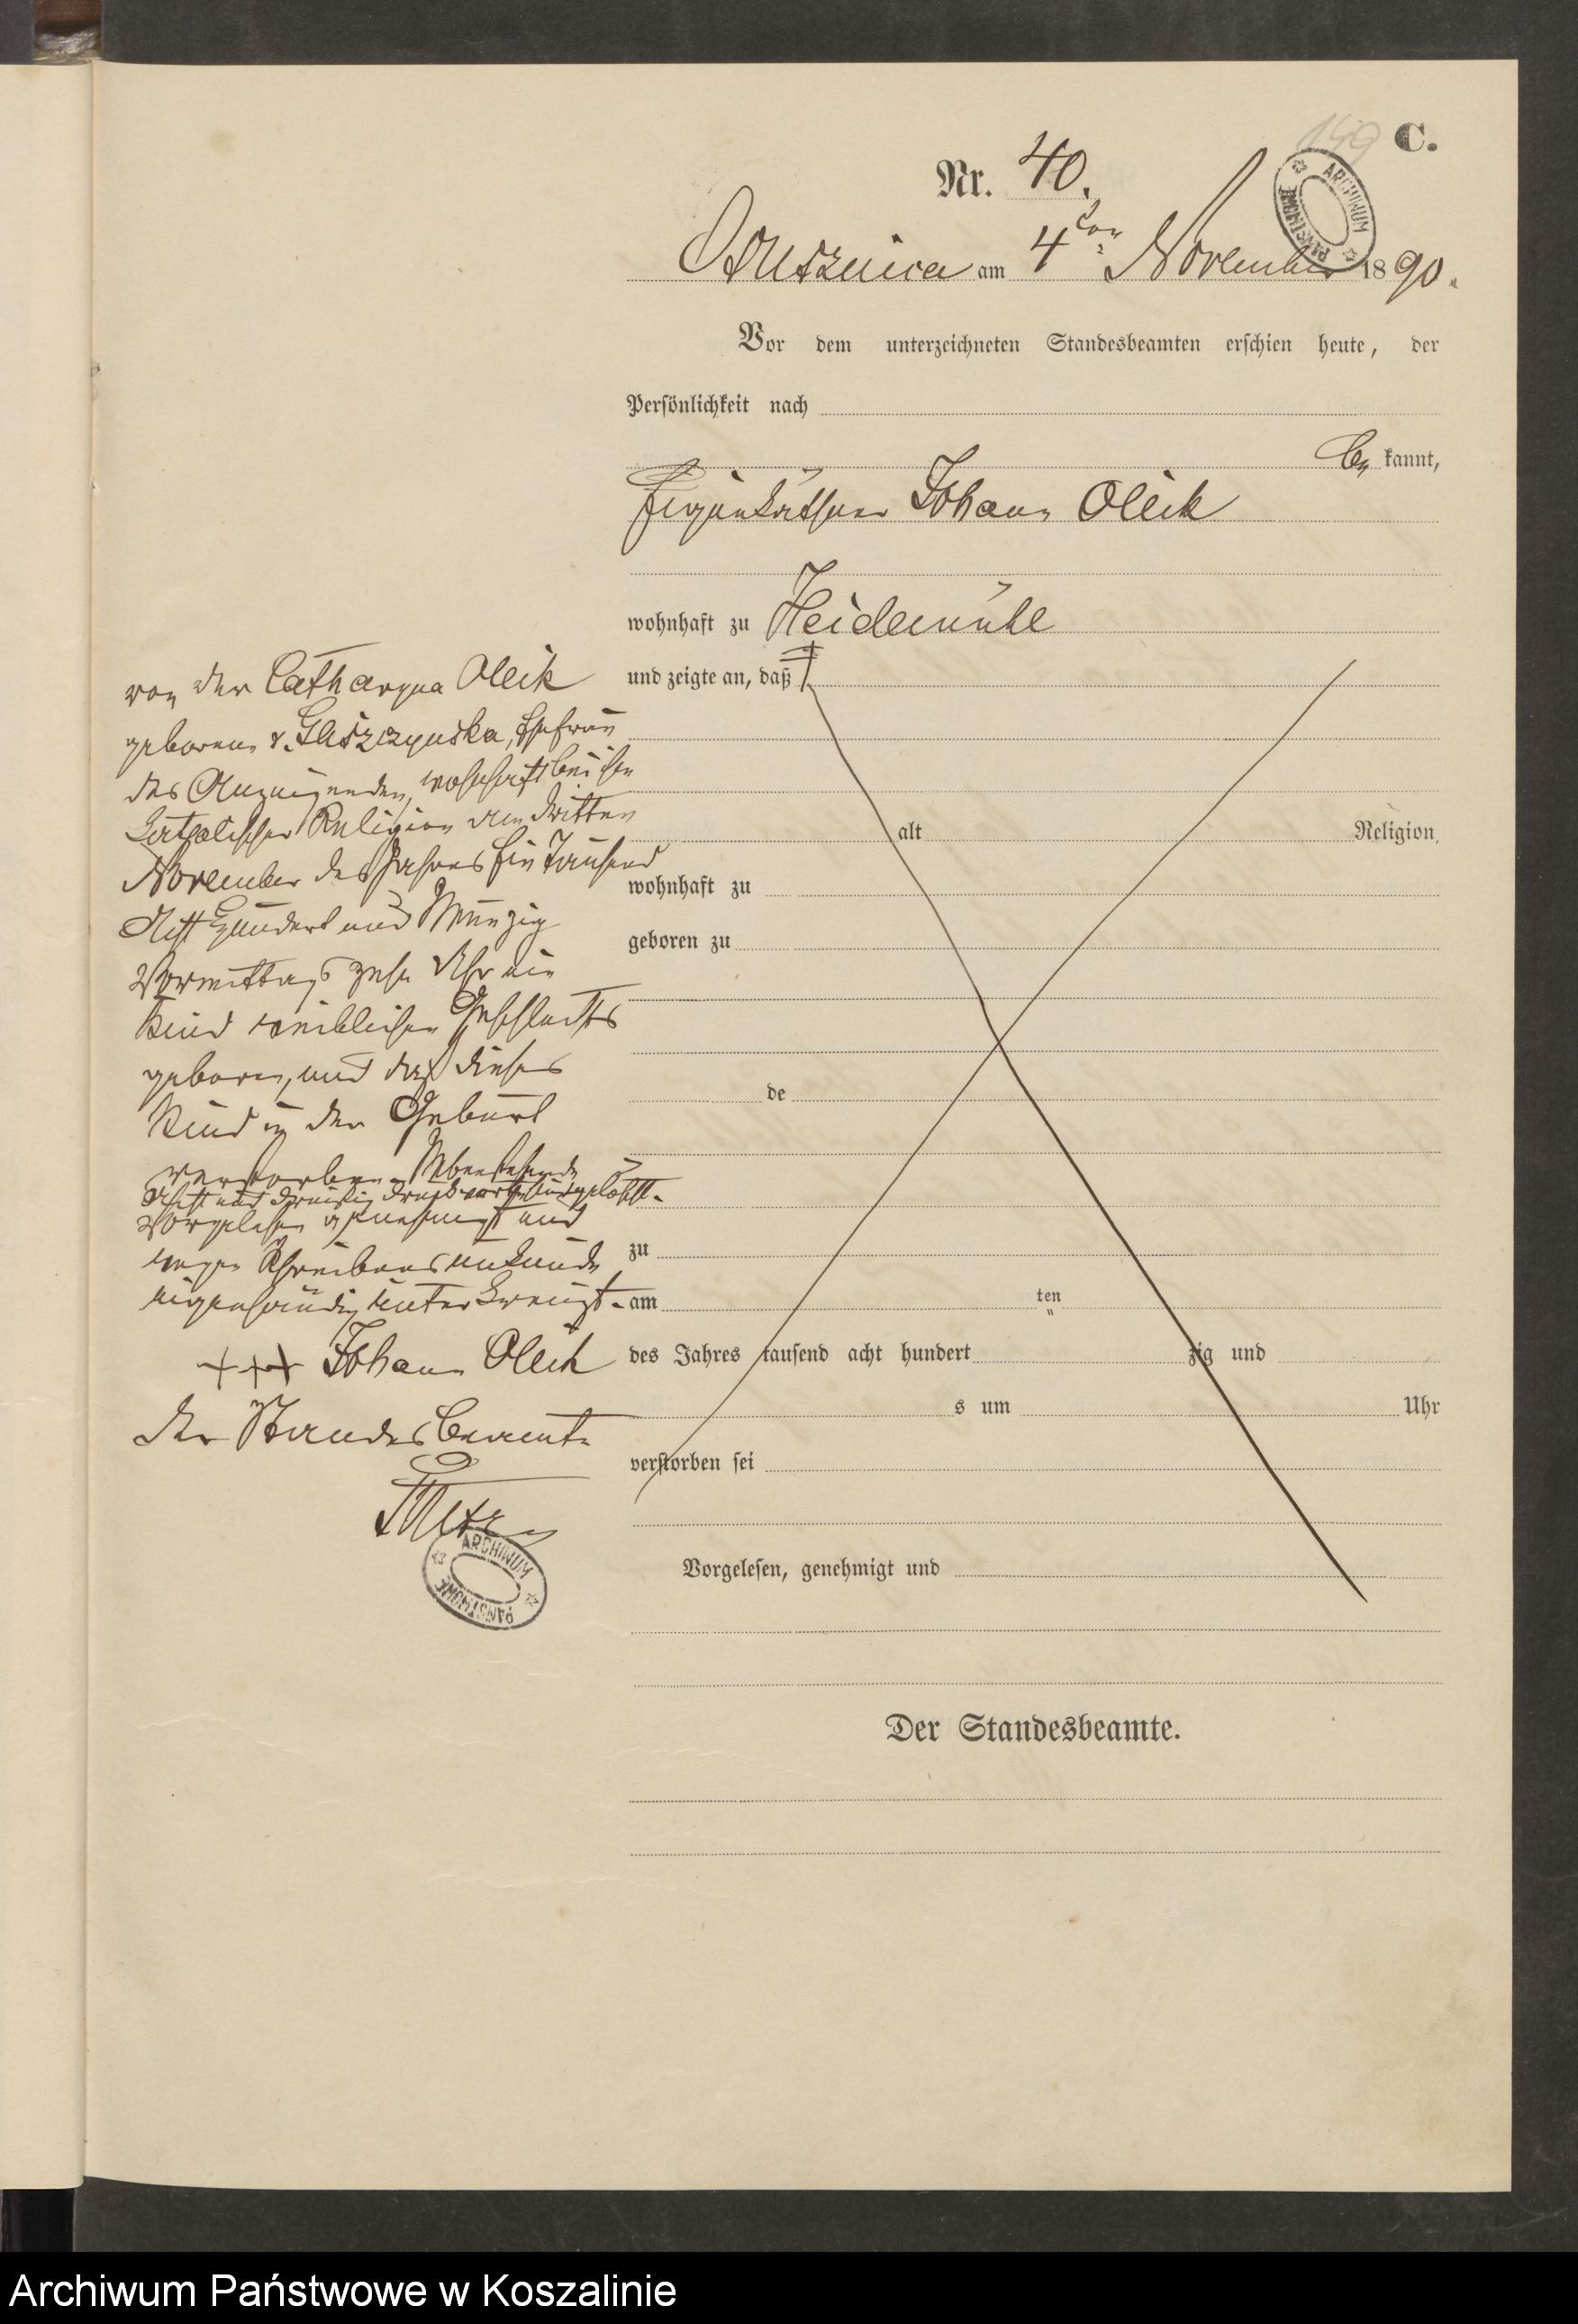 C.
149
Nr. 40.
Ossusznica am 4ten November 1890.
Vor dem unterzeichneten Standesbeamten erschien heute, der
Persönlichkeit nach
be kannt,
Eigenkäthner Johann Oleik
wohnhaft zu Heidemühl
und zeigte an, daß
von der Catharyna Oleik
geborene v. Gliszczynska, Ehefrau
des Anzeigenden, wohnhaft bei ihm
katholischer Religion am dritten
November des Jahres Ein Tausend
Acht Hundert und Neunzig
Vormittags zehn Uhr ein
Kind weiblichen Geschlechts
geboren, und daß dieses
Kind in der Geburt
verstorben. Nebenstehende
Acht und dreißig Druckworte ausgelöscht.
Vorgelesen genehmigt und
wegen Schreibensunkunde
eigenhändig unterkreuzt.
+++ Johann Oleik
Der Standesbeamte
alt Religion,
wohnhaft zu
geboren zu
de
zu
am ten
des Jahres tausend acht hundert zig und
s um Uhr
verstorben sei
Vorgelesen, genehmigt und
Der Standesbeamte.
ARCHIWUM PAŃSTWOWE
ARCHIWUM PAŃSTWOWE
Archiwum Państwowe w Koszalinie